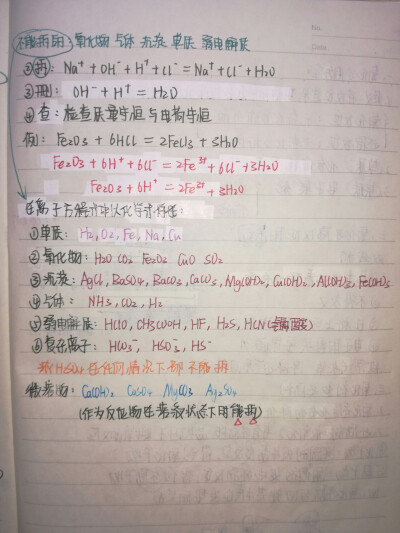 不能拆的 氧化物 气体 沉淀 单质 弱电解质
②拆: Na⁺ + OH⁻ + H⁺ + Cl⁻ = Na⁺ + Cl⁻ + H₂O
③删: OH⁻ + H⁺ = H₂O
④查: 检查质量守恒与电荷守恒
例: Fe₂O₃ + 6HCl = 2FeCl₃ + 3H₂O
Fe₂O₃ + 6H⁺ + 6Cl⁻ = 2Fe³⁺ + 6Cl⁻ + 3H₂O
Fe₂O₃ + 6H⁺ = 2Fe³⁺ + 3H₂O
在离子方程式中以化学式存在:
①单质: H₂, O₂, Fe, Na, Cu
②氧化物: H₂O CO₂ Fe₂O₃ CaO SO₂
③沉淀: AgCl, BaSO₄, BaCO₃, CaCO₃, Mg(OH)₂, Cu(OH)₂, Al(OH)₃, Fe(OH)₃
④气体: NH₃, CO₂, H₂
⑤弱电解质: HClO, CH₃COOH, HF, H₂S, HCN
⑥复杂离子: HCO₃⁻, HSO₃⁻, HS⁻
浓H₂SO₄任何情况下都不能拆
微溶物: Ca(OH)₂ CaSO₄ MgCO₃ Ag₂SO₄
(作为反应物在溶液状态下时能拆)